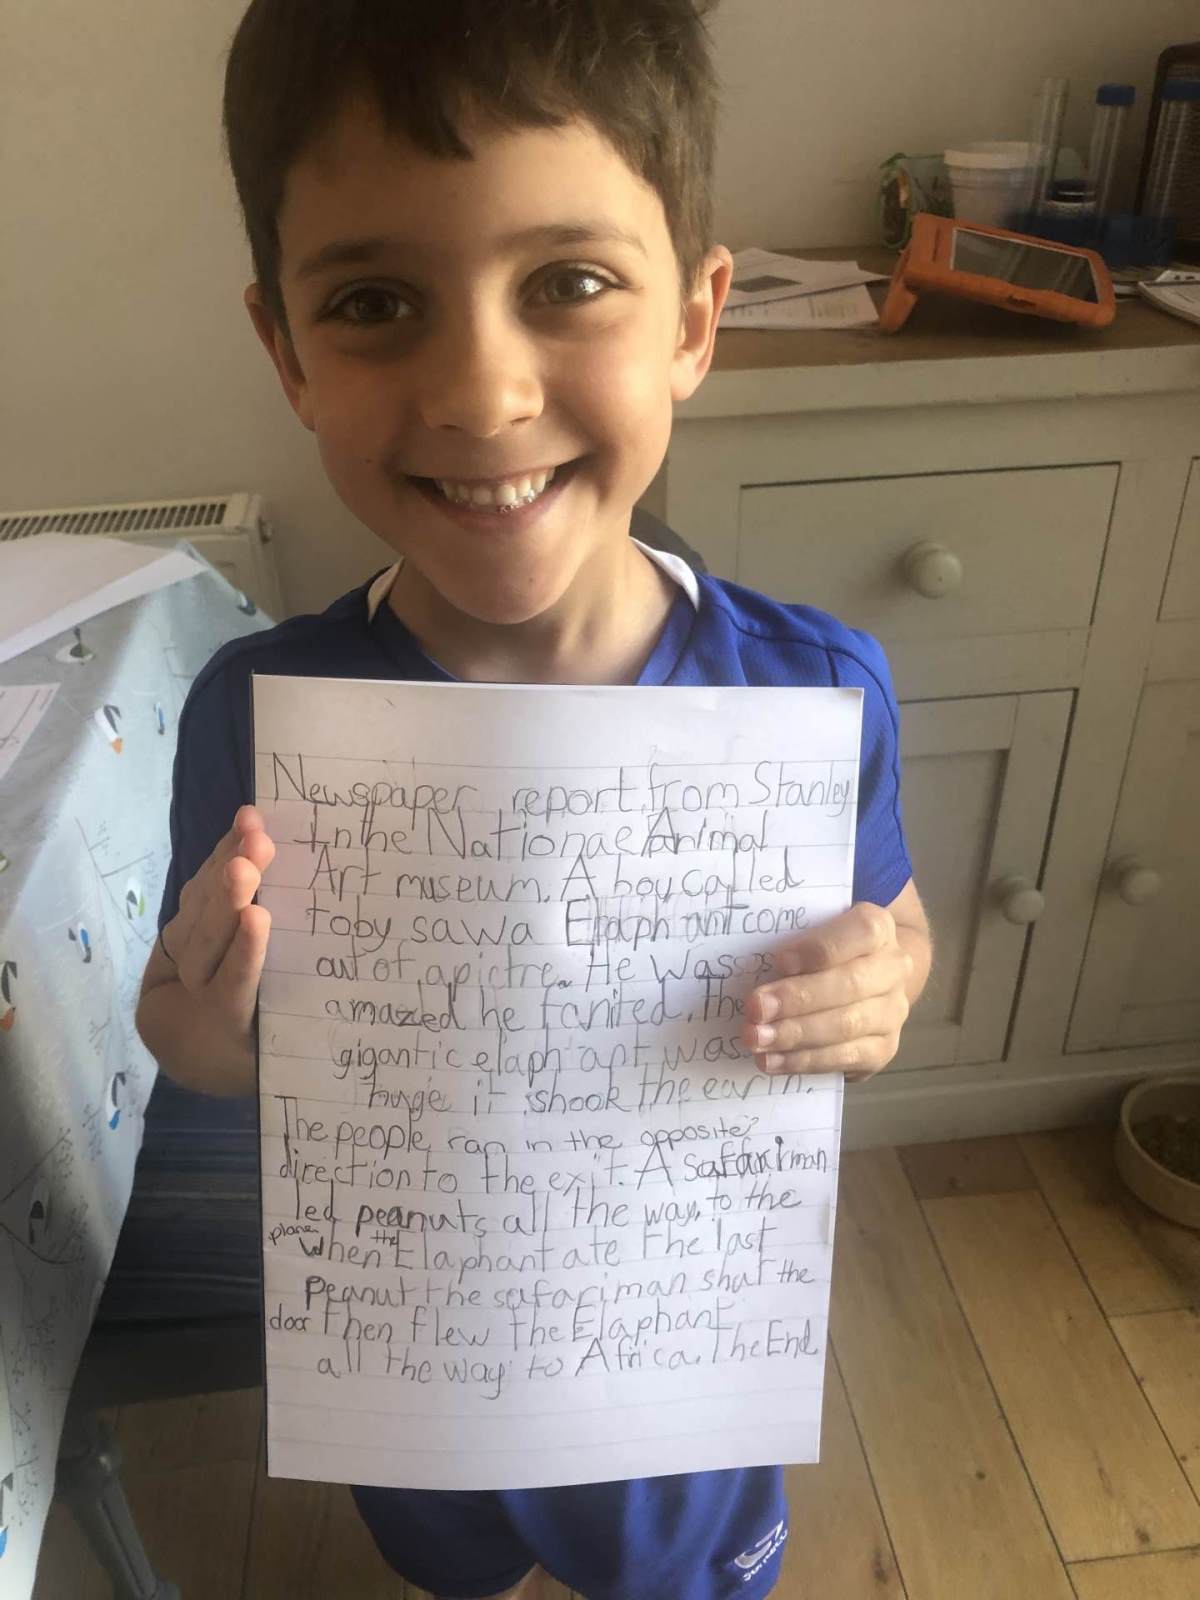 Newspaper report from Stanley
In the National Animal
Art museum. A boy called
toby saw a Elaphant come
out of a pictre. He was so
amazed he fanited. The
gigantic elaphant was
huge it shook the earth.
The people ran in the opposite
direction to the exit. A safari man
led peanuts all the way to the
plane when the Elaphant ate the last
Peanut the safari man shut the
door Then flew the Elaphant
all the way to Africa. The End